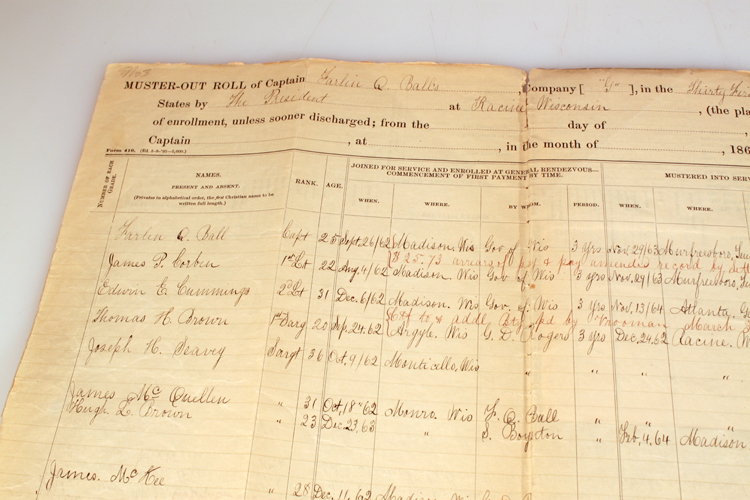 MUSTER-OUT ROLL of Captain Farlin Q. Ball's Company [ "G" ], in the Thirty First
States by The President at Racine Wisconsin , (the pla
of enrollment, unless sooner discharged; from the day of
Captain , at , in the month of , 186
Form 410.
NUMBER OF EACH GRADE.
NAMES.
PRESENT AND ABSENT.
(Privates in alphabetical order, the first Christian name to be written full length.)
RANK. AGE.
JOINED FOR SERVICE AND ENROLLED AT GENERAL RENDEZVOUS—
COMMENCEMENT OF FIRST PAYMENT BY TIME.
WHEN. WHERE. BY WHOM. PERIOD.
MUSTERED INTO SERV
WHEN. WHERE.
Farlin Q. Ball Capt Sept. 26/62 Madison, Wis Gov of Wis 3 yrs Nov. 29/63 Murfreesboro,
$25.73 arrears of pay &
James P. Corben 1st Lt 22 Aug. 4/62 Madison. Wis Gov of Wis 3 yrs Nov. 29/63 Murfreesboro,
Edwin E. Cummings 2d Lt 31 Dec. 6/62 Madison. Wis Gov. of Wis 3 yrs Nov. 13/64 Atlanta. G
by Vrooman March
Thomas H. Brown 1st Sarg 20 Sep. 24.62 Argyle. Wis G. D. Rogers 3 yrs Dec. 24.62 Racine. W
Joseph H. Seavey Sargt 36 Oct. 9/62 Monticello, Wis " "
James McQuillen " 31 Oct. 18"62 Monro. Wis F. Q. Ball " "
Hugh L. Brown " 23 Dec. 23.63 " S. Boynton " Feb. 4. 64 Madison
James. McKee " 28 Dec. 14/62 Madison